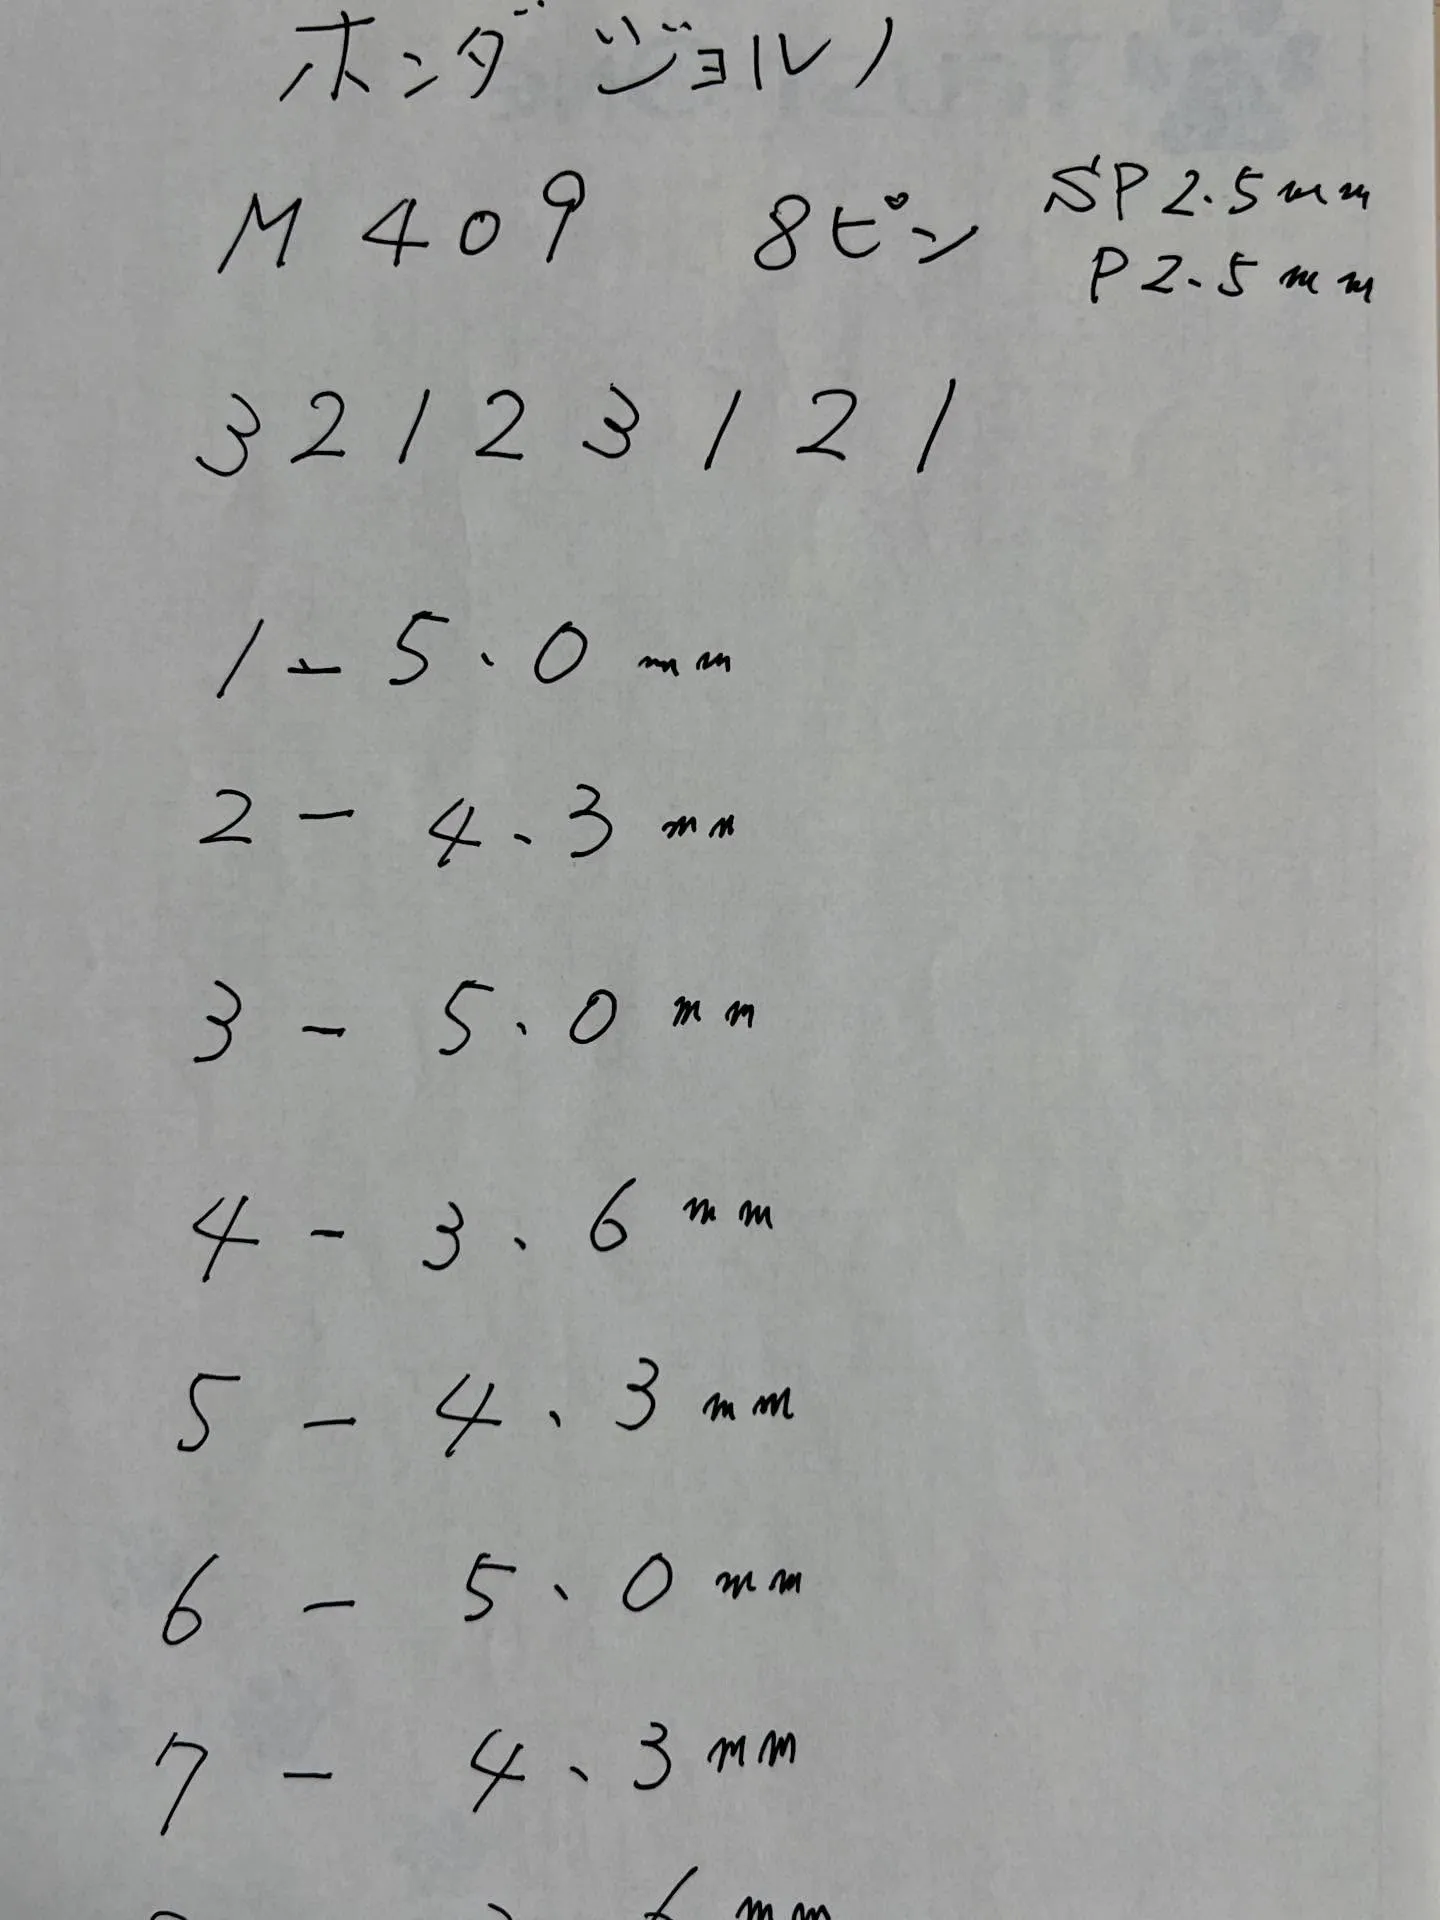 ホンダ ジョルノ
M409 8ピン SP2.5mm
P2.5mm
32123121
1-5.0mm
2-4.3mm
3-5.0mm
4-3.6mm
5-4.3mm
6-5.0mm
7-4.3mm
6mm